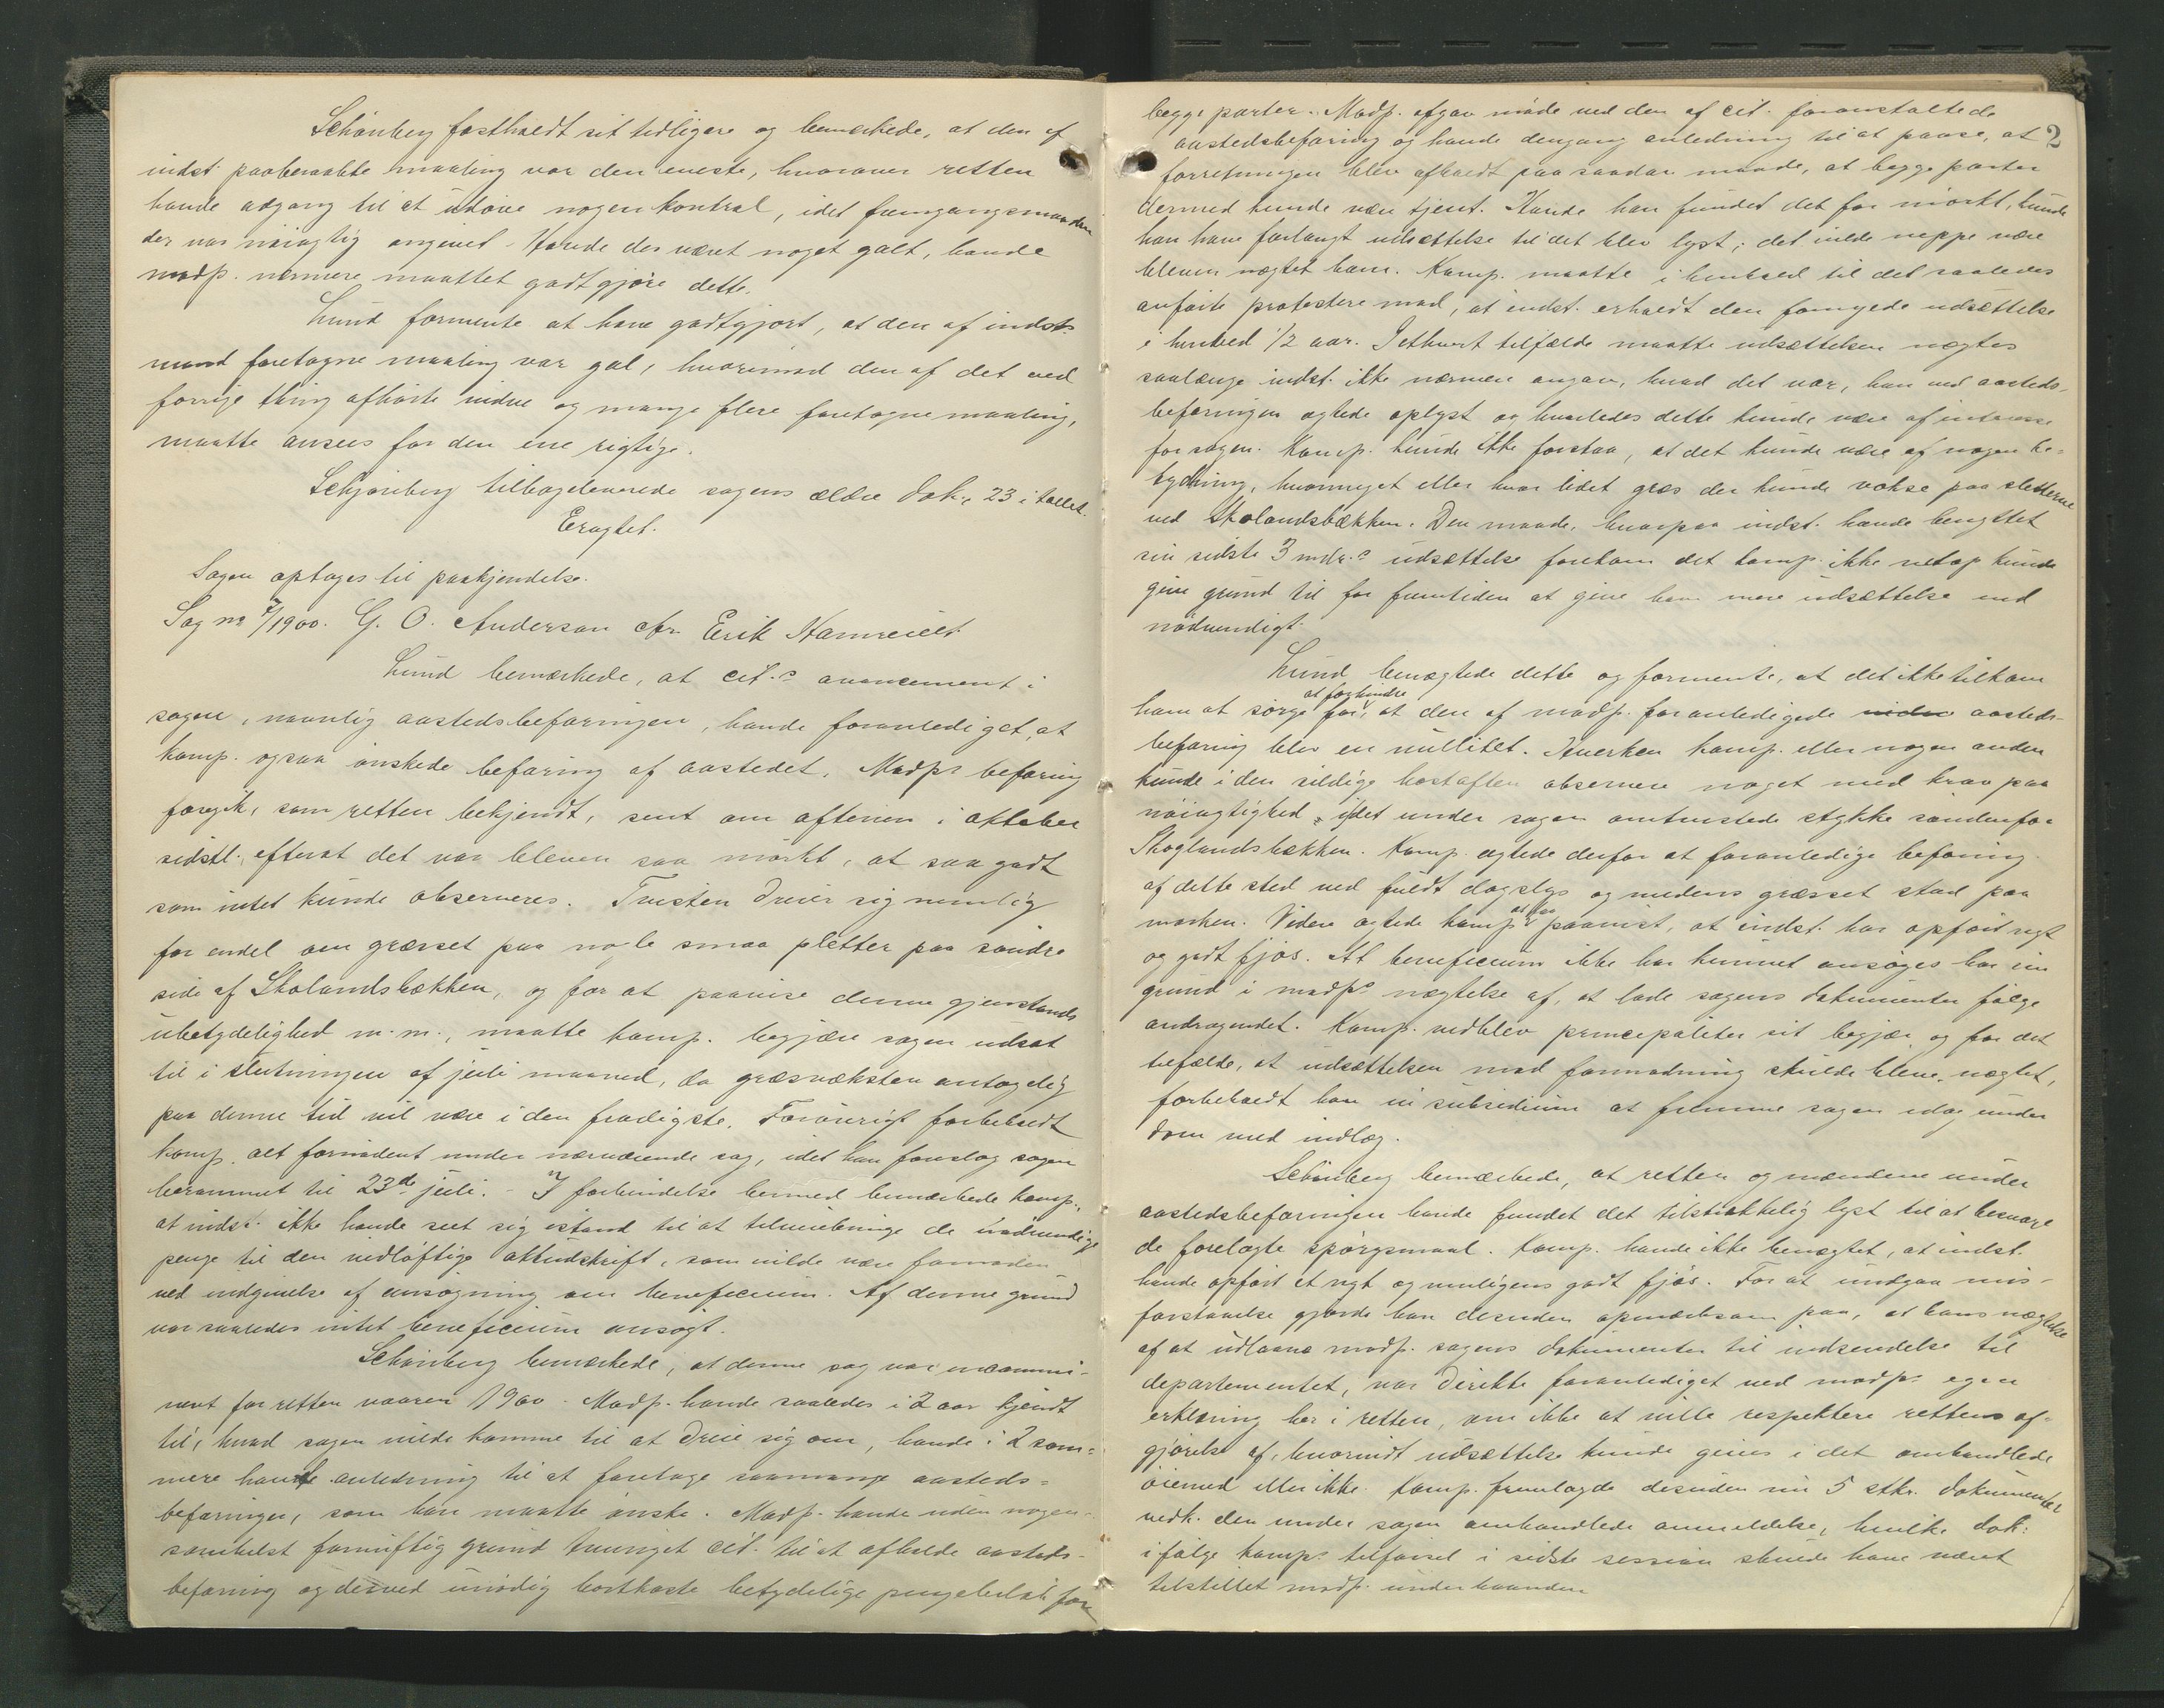 Schønberg fastholdt sit tidligere og bemærkede, at den af
indst. paaberaabte maaling var den eneste, hvorover retten
havde adgang til at udøve nogen kontrol, idet fremgangsmaaden
der var nøiagtig angivet. Havde der været noget galt, havde
modp. nærmere maattet godtgjøre dette.
Lund formente at have godtgjort, at den af indst.
mand foretagne maaling var gal, hvorimod den af det ved
forrige thing afhørte vidne og mange flere foretagne maaling,
maatte ansees for den ene rigtige.
Schjønberg tilbageleverede sagens ældre dok., 23 i tallet.
Eragtet.
Sagen optages til paakjendelse.
Sag no 7/1900. G. O. Anderson ctr. Erik Hamreiet
Lund bemærkede, at cit.s avancement i
sagen, navnlig aastedsbefaringen, havde foranlediget, at
komp. ogsaa ønskede befaring af aastedet. Modp.s befaring
foregik, som retten bekjendt, sent om aftenen i oktober
sidstl. efterat det var bleven saa mørkt, at saa godt
som intet kunde observeres. Tvisten dreier sig nemlig
for endel om græsset paa nogle smaa pletter paa søndre
side af Skolandsbækken, og for at paavise denne gjenstands
ubetydelighed m.m., maatte komp. begjære sagen udsat
til i slutningen af juli maaned, da græsvæksten antagelig
paa denne tid vil være i den frodigste. Forøvrigt forbeholdt
komp. alt fornødent under nærværende sag, idet han foreslog sagen
berammet til 23de juli. - I forbindelse hermed bemærkede komp.,
at indst. ikke havde seet sig istand til at tilveiebringe de nødvendige
penge til den vidløftige aktudskrift, som vilde være fornøden
ved indgivelse af ansøgning om beneficium. Af denne grund
var saaledes intet beneficium ansøgt.
Schønberg bemærkede, at denne sag var incammi-
neret for retten vaaren 1900. Modp. havde saaledes i 2 aar kjendt
til, hvad sagen vilde komme til at dreie sig om, havde i 2 som-
mere havt anledning til at foretage saamange aasteds-
befaringer, som han maatte ønske. Modp. havde uden nogen-
somhelst fornuftig grund tvunget cit. til at afholde aasteds-
befaring og derved unødig bortkaste betydelige pengebeløb for
2
begge parter. Modp. afgav møde ved den af cit. foranstaltede
aastedsbefaring og havde dengang anledning til at paase, at
forretningen blev afholdt paa saadan maade, at begge parter
dermed kunde være tjent. Havde han fundet det for mørkt, kunde
han have forlangt udsættelse til det blev lyst; det vilde neppe være
bleven nægtet ham. Komp. maatte i henhold til det saaledes
anførte protestere mod, at indst. erholdt den fornyede udsættelse
i henved 1/2 aar. I ethvert tilfælde maatte udsættelsen nægtes
saalænge indst. ikke nærmere angav, hvad det var, han ved aasteds-
befaringen agtede oplyst og hvorledes dette kunde være af interesse
for sagen. Komp. kunde ikke forstaa, at det kunde være af nogen be-
tydning, hvormeget eller hvor lidet græs der kunde vokse paa sletterne
ved Skolandsbækken. Den maade, hvorpaa indst. havde benyttet
sin sidste 3 mdr.s udsættelse forekom det komp. ikke netop kunde
give grund til for fremtiden at give ham mere udsættelse end
nødvendigt.
Lund benægtede dette og formente, at det ikke tilkom
ham at sørge for, at forhindre at den af modp. foranledigede aasteds-
befaring blev en nullitet. Hverken komp. eller nogen anden
kunde i den sildige høstaften observere noget med krav paa
nøiagtighed i det under sagen omtvistede stykke søndenfor
Skoglandsbækken. Komp. agtede derfor at foranledige befaring
af dette sted ved fuldt dagslys og medens græsset stod paa
marken. Videre agtede komp. at faa paavist, at indst. har opført nyt
og godt fjøs. At beneficium ikke har kunnet ansøges har sin
grund i modp.s nægtelse af, at lade sagens dokumenter følge
andragendet. Komp. vedblev principaliter sit begjær og for det
tilfælde, at udsættelsen mod formodning skulde blive nægtet,
forbeholdt han in subsidium at fremme sagen idag under
dom med indlæg.
Schønberg bemærkede, at retten og mændene under
aastedsbefaringen havde fundet det tilstrækkelig lyst til at besvare
de forelagte spørgsmaal. Komp. havde ikke benægtet, at indst.
havde opført et nyt og muligens godt fjøs. For at undgaa mis-
forstaaelse gjorde han desuden opmærksom paa, at hans nægtelse
af at udlaane modp. sagens dokumenter til indsendelse til
departementet, var direkte foranlediget ved modp.s egen
erklæring her i retten, om ikke at ville respektere rettens af-
gjørelse af, hvorvidt udsættelse kunde gives i det omhandlede
øiemed eller ikke. Komp. fremlagde desuden nu 5 stkr. dokumenter
vedk. den under sagen omhandlede anmeldelse, hvilke dok.
ifølge komp.s tilførsel i sidste session skulde have været
tilstillet modp. underhaanden